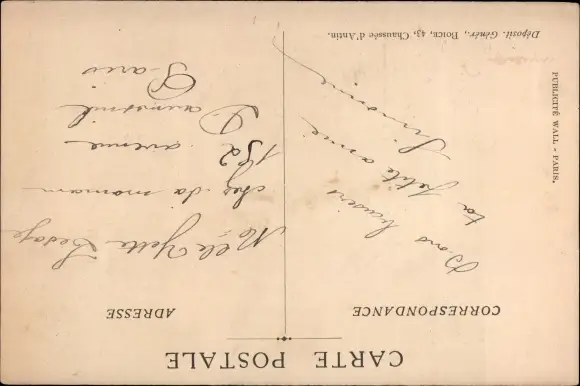 CARTE POSTALE
CORRESPONDANCE
Bons baisers
ta petite amie
Simone
ADRESSE
Melle Yette
chez sa maman
152 avenue
Daumesnil
Paris
PUBLICITÉ WALL - PARIS.
Déposit. Génér., BOICE, 43, Chaussée d'Antin.